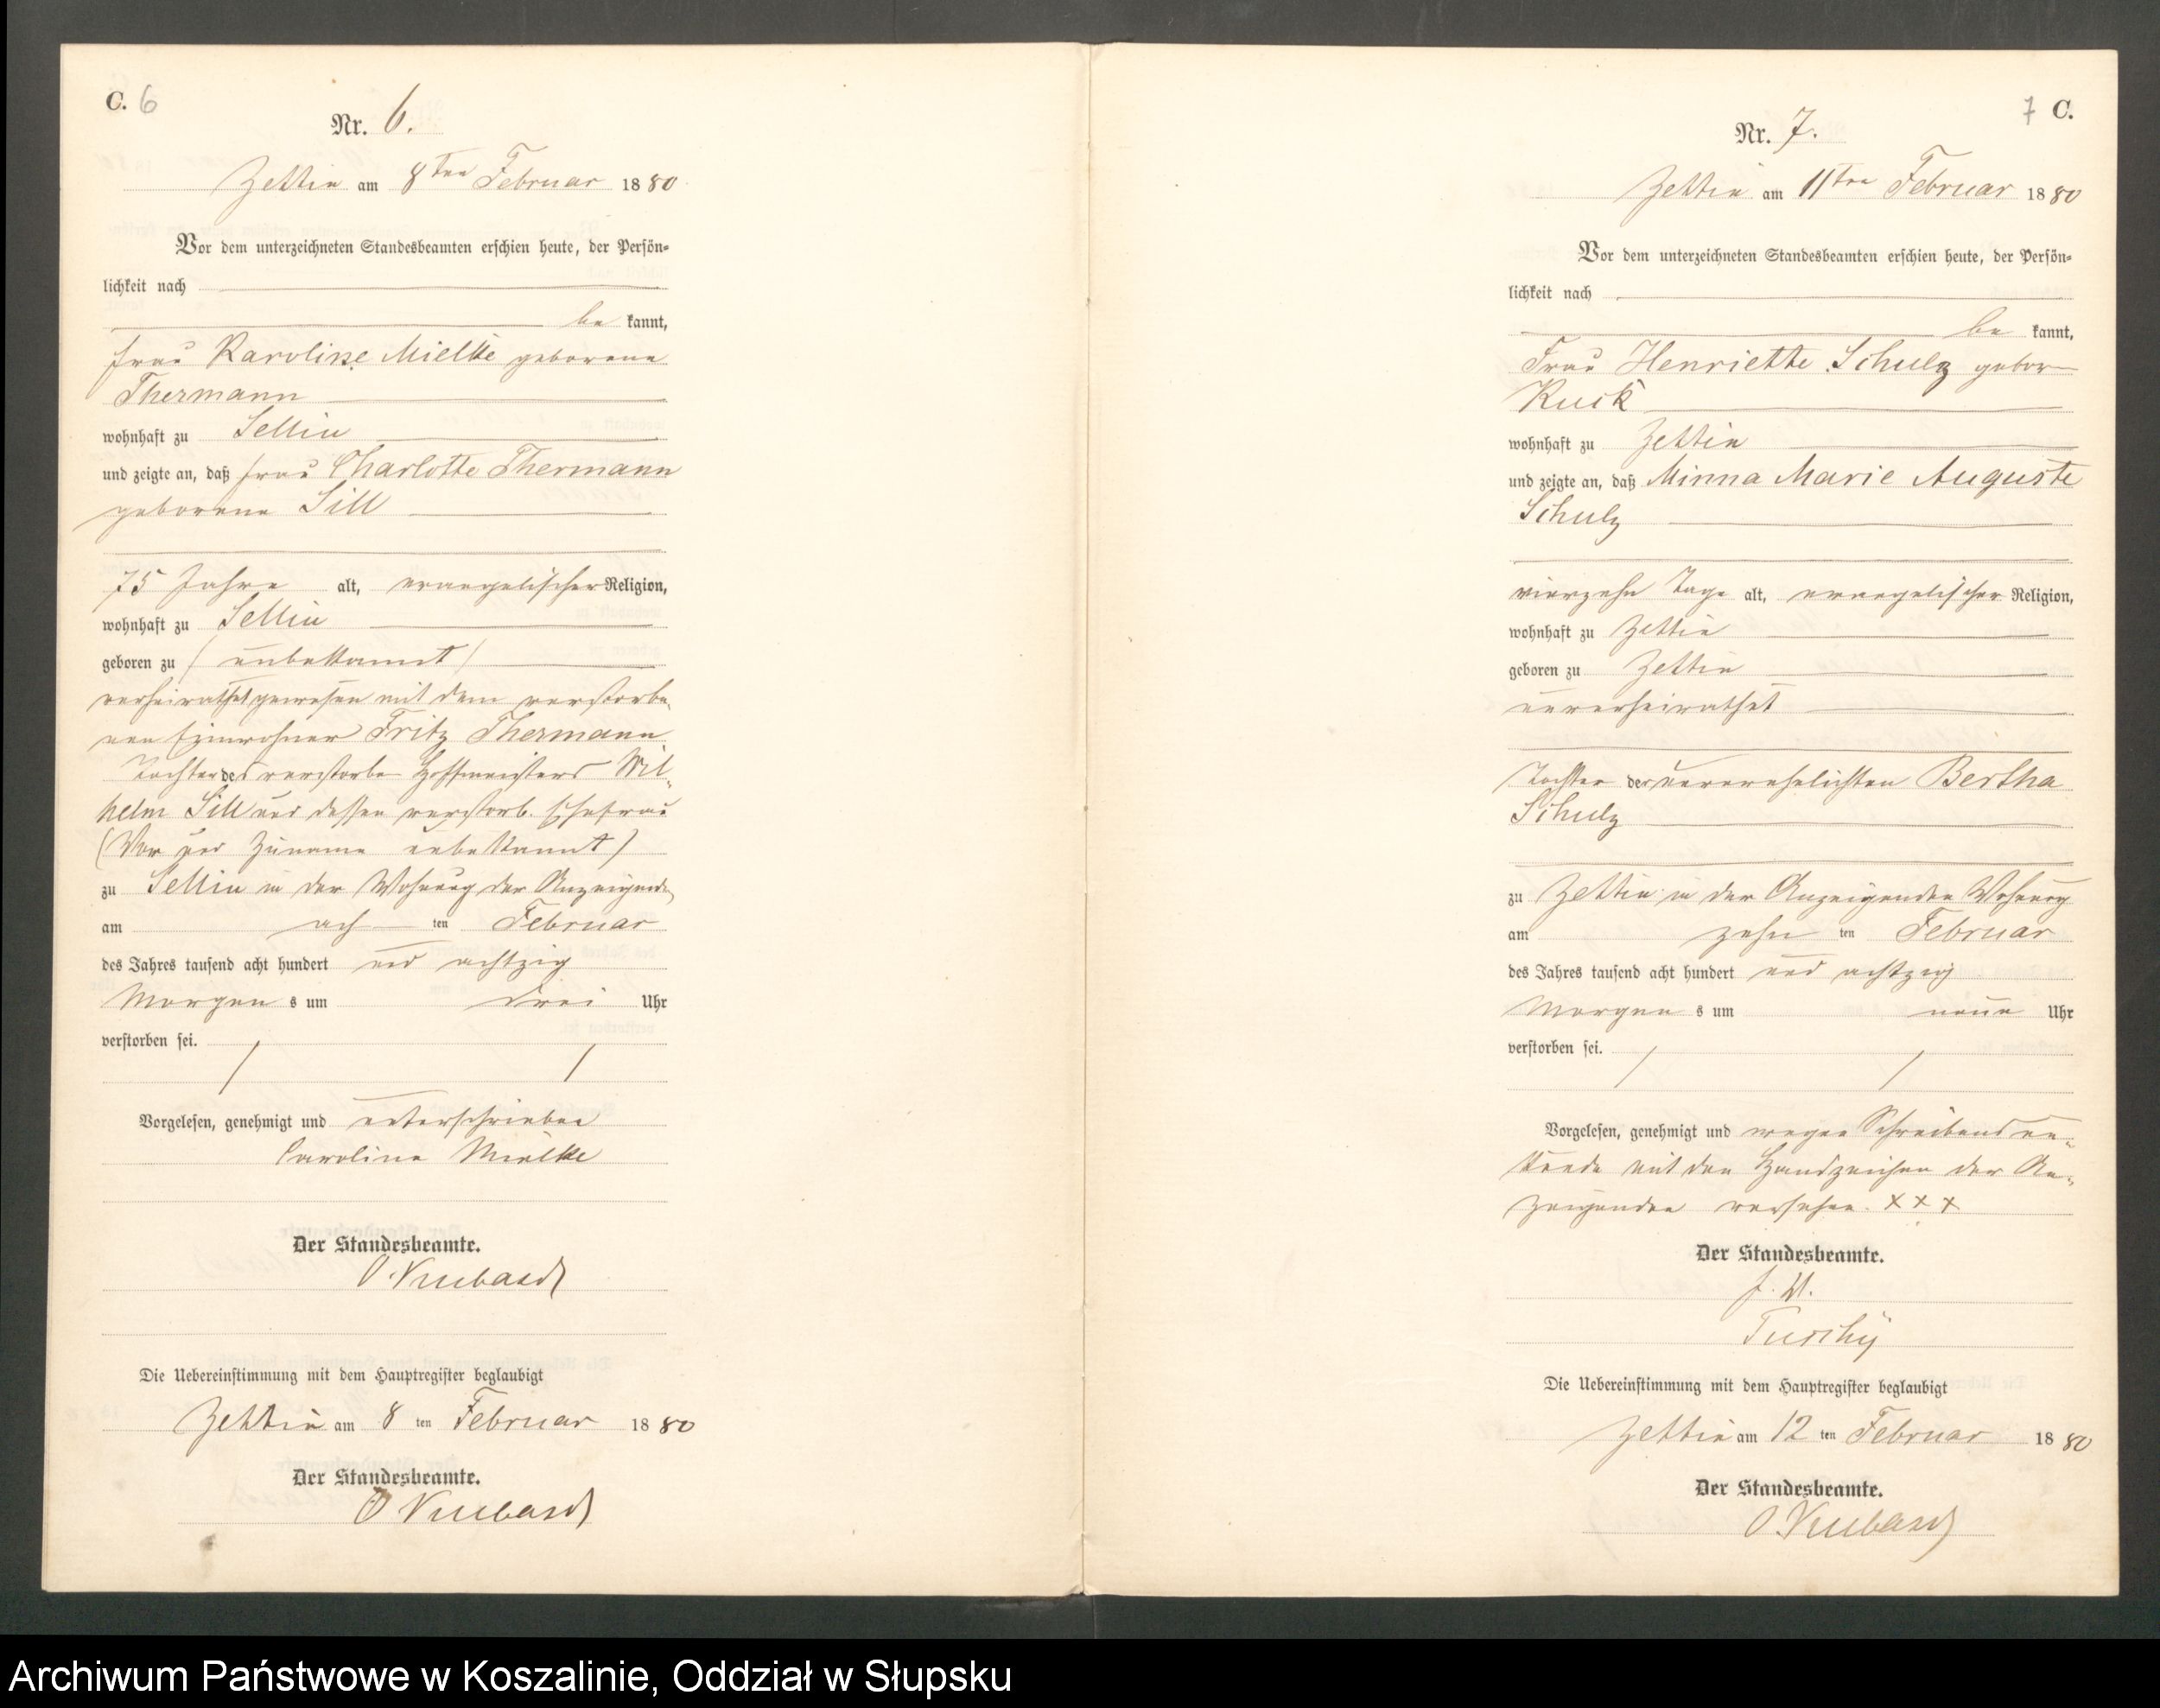 C. 6
Nr. 6.
Zettin am 8ten Februar 1880
Vor dem unterzeichneten Standesbeamten erschien heute, der Persön-
lichkeit nach
be kannt,
Frau Karoline Mielke geborene
Thermann
wohnhaft zu Sellin
und zeigte an, daß Frau Charlotte Thermann
geborene Sill
75 Jahre alt, evangelischer Religion,
wohnhaft zu Sellin
geboren zu / unbekannt /
verheirathet gewesen mit dem verstorbe-
nen Einwohner Fritz Thermann
Tochter des verstorben Hoffmeisters Wil-
helm Sill und dessen verstorb. Ehefrau
(Vor und Zuname unbekannt)
zu Sellin in der Wohnung der Anzeigende
am ach ten Februar
des Jahres tausend acht hundert und achtzig
Morgen s um drei Uhr
verstorben sei.
Vorgelesen, genehmigt und unterschrieben
Caroline Mielke
Der Standesbeamte.
Die Uebereinstimmung mit dem Hauptregister beglaubigt
Zettin am 8 ten Februar 1880
Der Standesbeamte.
7 C.
Nr. 7.
Zettin am 11ten Februar 1880
Vor dem unterzeichneten Standesbeamten erschien heute, der Persön-
lichkeit nach
be kannt,
Frau Henriette Schulz gebor
Kuck
wohnhaft zu Zettin
und zeigte an, daß Minna Marie Auguste
Schulz
vierzehn Tage alt, evangelischer Religion,
wohnhaft zu Zettin
geboren zu Zettin
unverheirathet
Tochter der unverehelichten Bertha
Schulz
zu Zettin in der Anzeigenden Wohnung
am zehn ten Februar
des Jahres tausend acht hundert und achtzig
Morgen s um neun Uhr
verstorben sei.
Vorgelesen, genehmigt und wegen Schreibensun-
kunde mit den Handzeichen der An-
zeigenden versehen. X X X
Der Standesbeamte.
Die Uebereinstimmung mit dem Hauptregister beglaubigt
Zettin am 12 ten Februar 1880
Der Standesbeamte.
Archiwum Państwowe w Koszalinie, Oddział w Słupsku